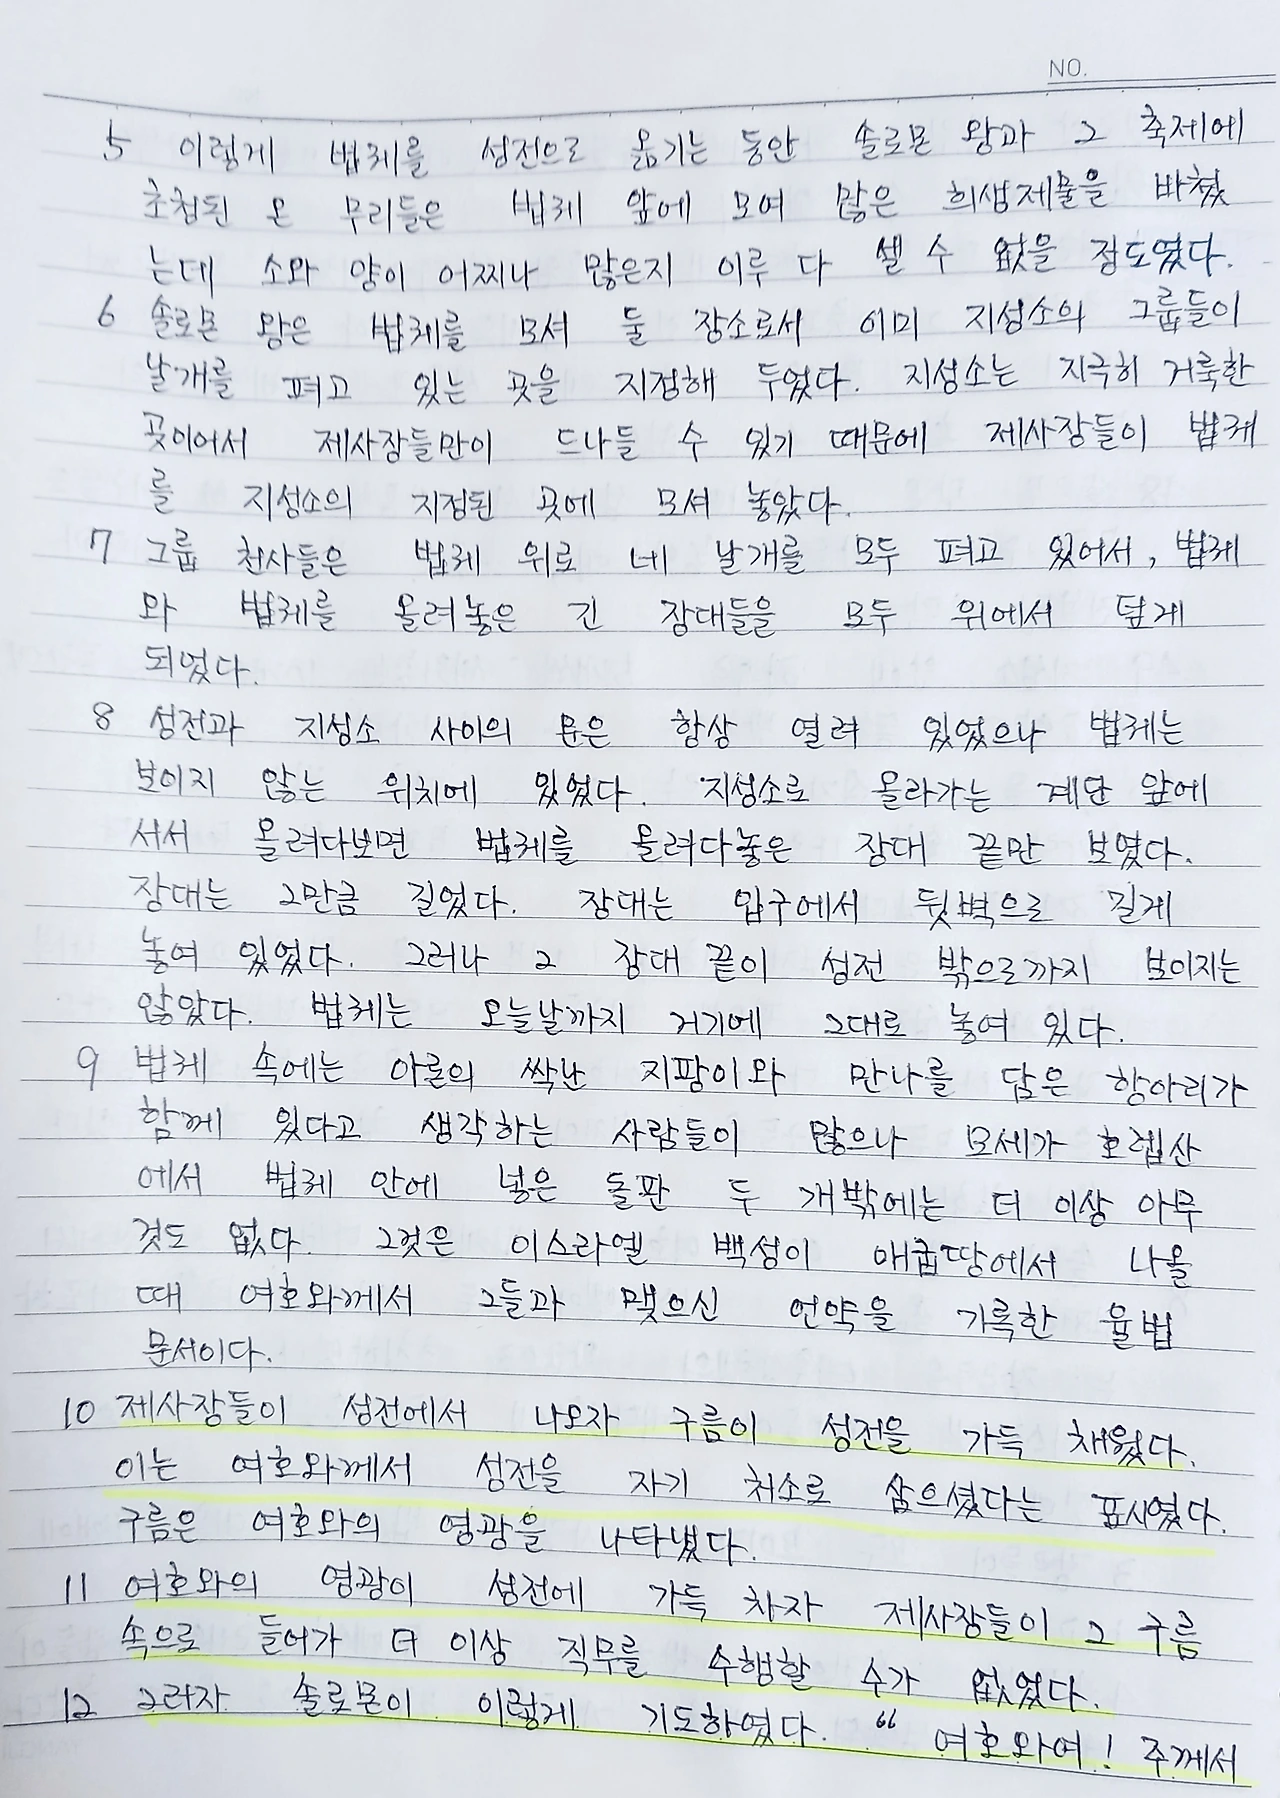 NO.
5 이렇게 법궤를 성전으로 옮기는 동안 솔로몬 왕과 그 축제에
초청된 온 무리들은 법궤 앞에 모여 많은 희생제물을 바쳤
는데 소와 양이 어찌나 많은지 이루 다 셀 수 없을 정도였다.
6 솔로몬 왕은 법궤를 모셔 둘 장소로서 이미 지성소의 그룹들이
날개를 펴고 있는 곳을 지정해 두었다. 지성소는 지극히 거룩한
곳이어서 제사장들만이 드나들 수 있기 때문에 제사장들이 법궤
를 지성소의 지정된 곳에 모셔 놓았다.
7 그룹 천사들은 법궤 위로 네 날개를 모두 펴고 있어서, 법궤
와 법궤를 올려놓은 긴 장대들을 모두 위에서 덮게
되었다.
8 성전과 지성소 사이의 문은 항상 열려 있었으나 법궤는
보이지 않는 위치에 있었다. 지성소로 올라가는 계단 앞에
서서 올려다보면 법궤를 올려다놓은 장대 끝만 보였다.
장대는 그만큼 길었다. 장대는 입구에서 뒷벽으로 길게
놓여 있었다. 그러나 그 장대 끝이 성전 밖으로까지 보이지는
않았다. 법궤는 오늘날까지 거기에 그대로 놓여 있다.
9 법궤 속에는 아론의 싹난 지팡이와 만나를 담은 항아리가
함께 있다고 생각하는 사람들이 많으나 모세가 호렙산
에서 법궤 안에 넣은 돌판 두 개밖에는 더 이상 아무
것도 없다. 그것은 이스라엘 백성이 애굽땅에서 나올
때 여호와께서 그들과 맺으신 언약을 기록한 율법
문서이다.
10 제사장들이 성전에서 나오자 구름이 성전을 가득 채웠다.
이는 여호와께서 성전을 자기 처소로 삼으셨다는 표시였다.
구름은 여호와의 영광을 나타냈다.
11 여호와의 영광이 성전에 가득 차자 제사장들이 그 구름
속으로 들어가 더 이상 직무를 수행할 수가 없었다.
12 그러자 솔로몬이 이렇게 기도하였다. “여호와여! 주께서